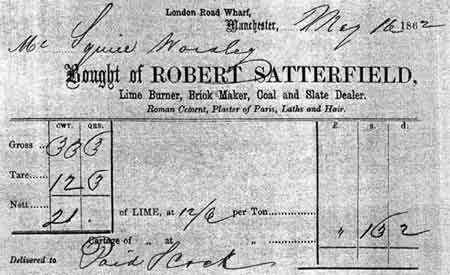 London Road Wharf,
Manchester, May 16 1862
Mr Squire Worsley
Bought of ROBERT SATTERFIELD,
Lime Burner, Brick Maker, Coal and Slate Dealer.
Roman Cement, Plaster of Paris, Laths and Hair.
CWT. QRS. £. s. d.
Gross .. 33 3
Tare..... 12 3
Nett..... 21 . of LIME, at 12/6 per Ton...... „ 13 2
Cartage of „ at „
Delivered to Paid